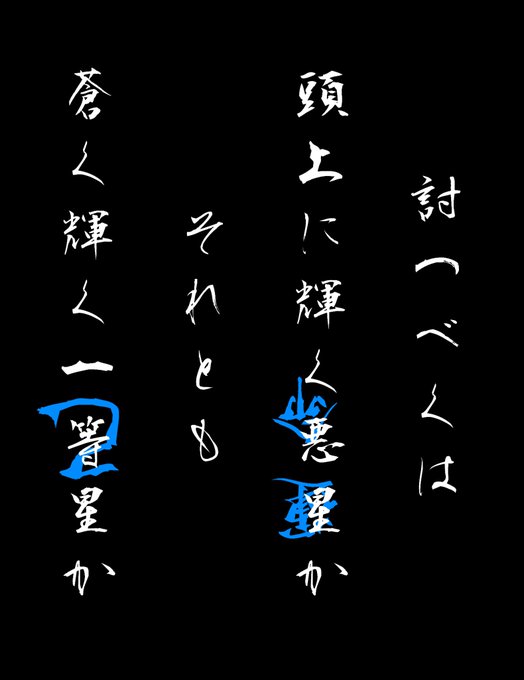 討つべくは
頭上に輝く悪星か
それとも
蒼く輝く一等星か